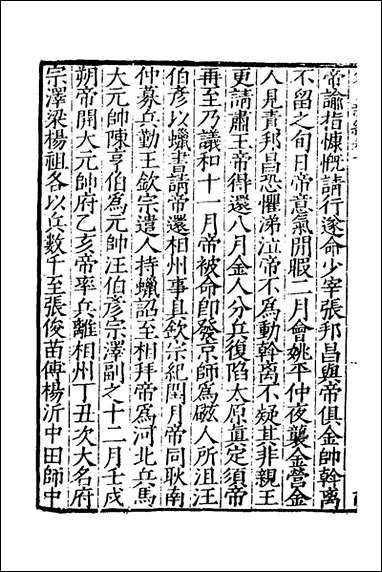 帝諭指慷慨請行遂命少宰張邦昌與帝俱金帥斡离
不留之旬日帝意氣閒暇二月會姚平仲夜襲金營金
人見責邦昌恐懼涕泣帝不爲動斡离不疑其非親王
更請肅王帝得還八月金人分兵復陷太原眞定須帝
再至乃議和十一月帝被命即發京師爲磁人所沮王
伯彥以蠟書請帝還相州事具欽宗紀閏月帝同耿南
仲募兵勤王欽宗遣人持蠟詔至相拜帝爲河北兵馬
大元帥陳亨伯爲元帥汪伯彥宗澤副之十二月壬戌
朔帝開大元帥府乙亥帝率兵離相州丁丑次大名府
宗澤梁楊祖各以兵數千至張俊苗傅楊沂中田師中